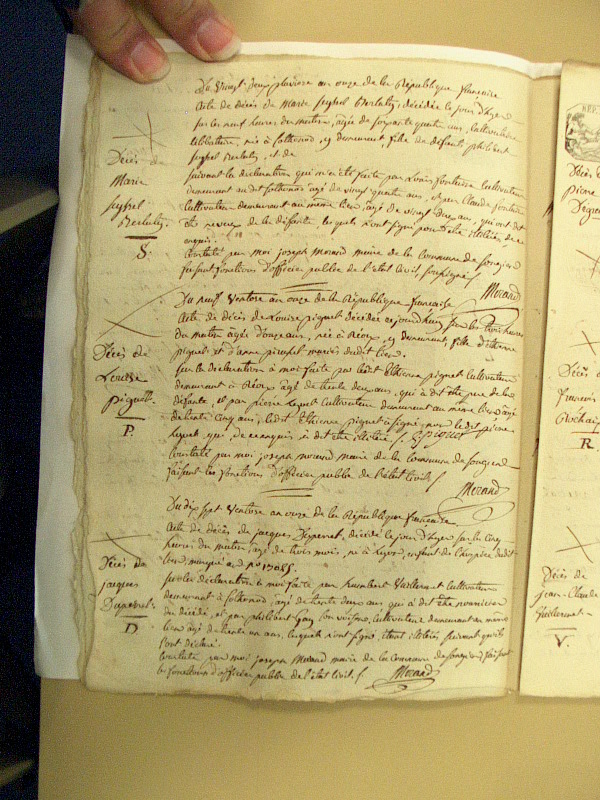 Du vingt deux pluviose an onze de la République française
Acte de décès de Marie Seyhel Berlioty, décédée le jour d'hyer
sur les neuf heures du matin, agée de soixante quatre ans, Cultivatrice
célibataire, née à Cothonod, y demeurant, fille de défunts philibert
Seyhel Berlioty, et de
Suivant la déclaration qui m'a été faite par Louis fontaine Cultivateur
demeurant audit Cothonod agé de vingt quatre ans, et par Claude fontaine
Cultivateur demeurant au même lieu, agé de vingt deux ans, qui ont dit
être neveux de la défunte, lesquels n'ont signé pour être illitérés de ce
enquis.
Constaté par moi joseph Morand maire de la Commune de Songieu
faisant fonctions d'officier public de l'état civil, soussigné
Morand
Décès de
Marie
Seyhel
Berlioty.
S.
Du neuf Ventose an onze de la République française
Acte de décès de Louise piguet décédée aujourd'huy sur les trois heures
du matin agée d'onze ans, née à Réoux, y demeurant, fille d'Etienne
piguet et d'anne mariés dudit lieu.
Sur la déclaration à moi faite par ledit Etienne piguet Cultivateur
demeurant à Réoux agé de trente deux ans, qui à dit être pere de la
défunte, et par pierre Cultivateur demeurant au même lieu agé
de trente cinq ans, ledit Etienne piguet a signé, non ledit pierre
qui, de ce enquis à dit être illitéré. E piguet
Constaté par moi joseph morand maire de la commune de Songieu
faisant les fonctions d'officier public de l'état civil
Morand
Décès de
Louise
piguet.
P.
Du dix sept Ventose an onze de la République française.
Acte de décès de jacques Duperret, décédé le jour d'hyer sur les cinq
heures du matin, agé de trois mois, né à Lyon, enfant de l'hospice dudit
lieu, marqué au n°
Sur la déclaration à moi faite par humbert Vuillermet Cultivateur
demeurant à Cothonod, agé de trente deux ans, qui à dit être nourricier
du décédé, et par philibert Gay son voisin, Cultivateur demeurant au même
lieu agé de trente un ans, lesquels n'ont signé, étant illitérés suivant qu'ils
l'ont déclaré.
Constaté par moi joseph Morand maire de la Commune de Songieu, faisant
les fonctions d'officier public de l'état civil. Morand
Décès de
jacques
Duperret.
D.
Décès
pierre
Décès de
francois
R.
Décès de
jean-Claude
Guillermet.
V.